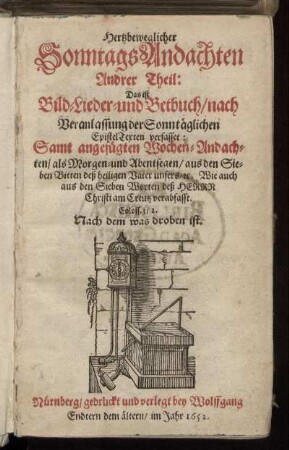 Hertzbeweglicher
Sonntags Andachten
Andrer Theil:
Das ist
Bild-Lieder-und Betbuch/ nach
Veranlassung der Sonntäglichen
Epistel Texten verfasset:
Samt angefügten Wochen-Andach-
ten/ als Morgen-und Abentsegen/ aus den Sie-
ben Bitten deß heiligen Vater unsers/ ꝛc. Wie auch
aus den Sieben Worten deß HERRN
Christi am Creutz verabfasst.
Coloss. 3/ 2.
Nach dem was droben ist.
Nürnberg/ gedruckt und verlegt bey Wolffgang
Endtern dem ältern/ im Jahr 1652.